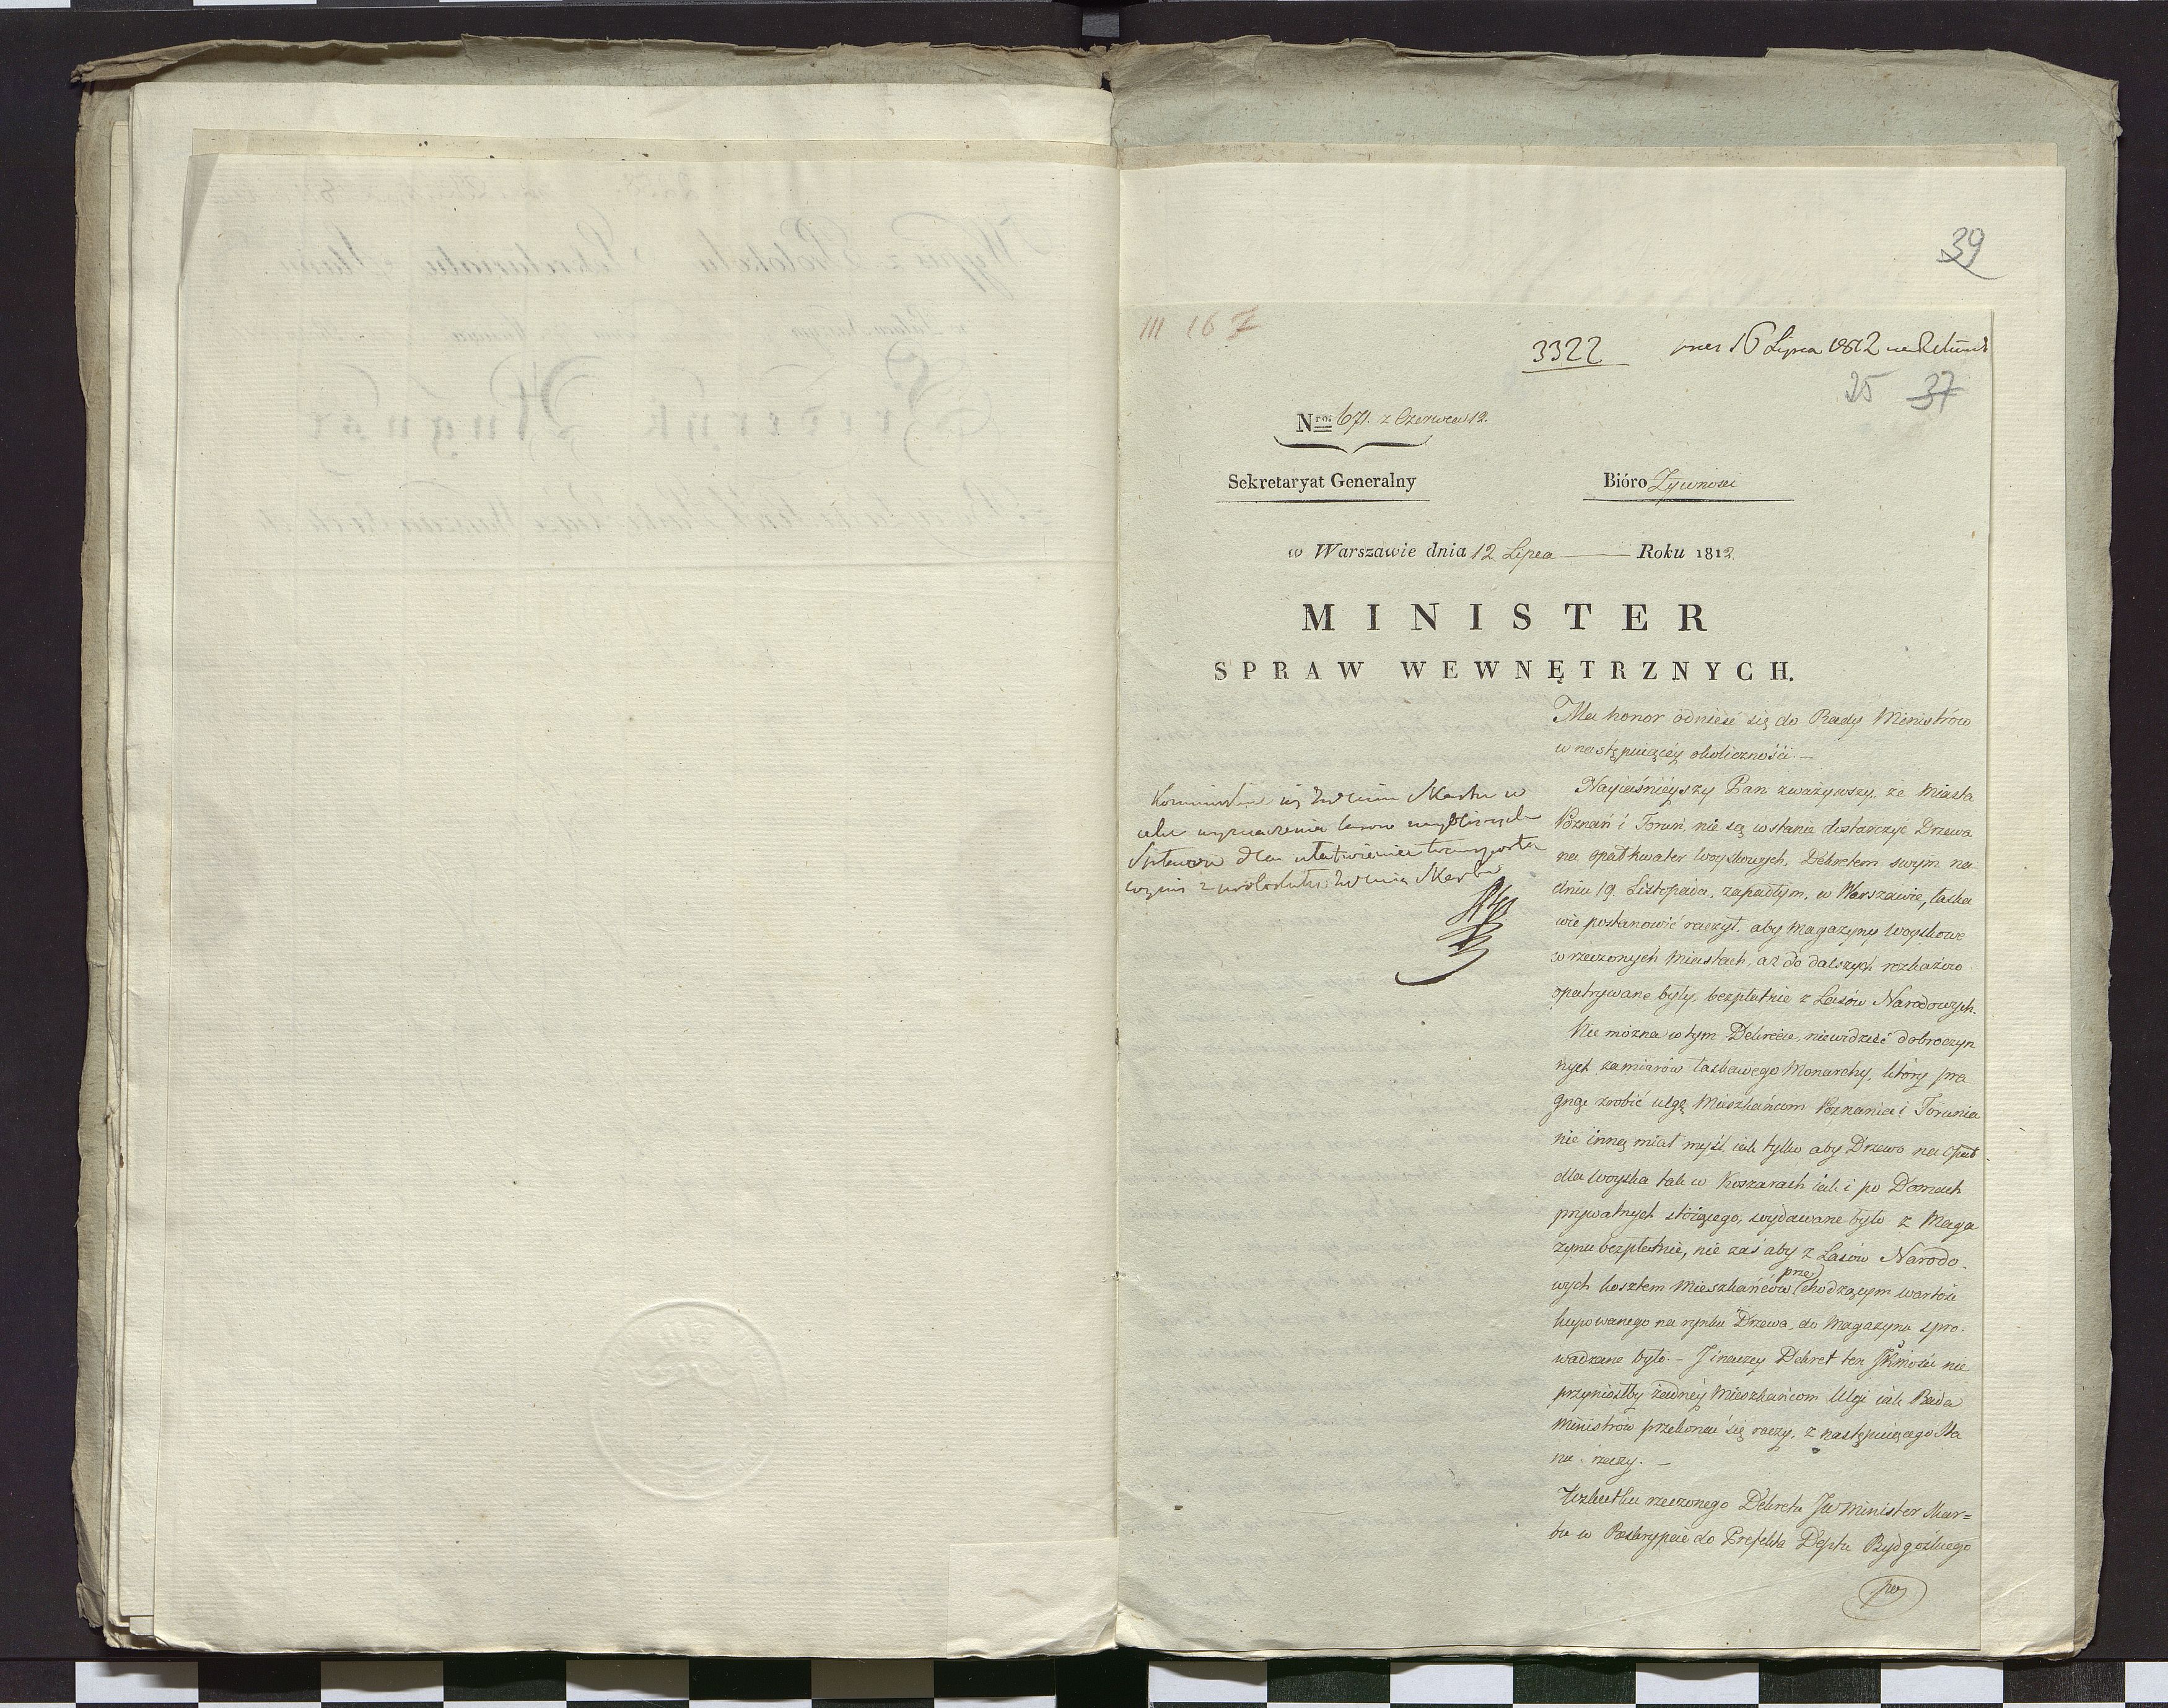 39
III 167
3322 prez 16 Lipca 1812
25 37
Nro. 671. z Czerwca 12.
Sekretaryat Generalny Bióro Żywności
w Warszawie dnia 12 Lipca Roku 1812
MINISTER
SPRAW WEWNĘTRZNYCH.
Ma honor odnieść się do Rady Ministrów
w następuiącéy okoliczności. —
Nayiaśnieyszy Pan zważywszy, że Miasta
Poznań i Toruń, nie są w stanie dostarczyć Drzewa
na opał kwater Woyskowych, Dekretem swym na
dniu 19. Listopada, zapadłym, w Warszawie, łaska
wie postanowić raczył, aby Magazyny Woyskowe
w rzeczonych Miastach, aż do dalszych rozkazów
opatrywane były, bezpłatnie z Lasów Narodowych.
Nie można w tym Dekrecie, niewidzieć dobroczyn
nych zamiarów łaskawego Monarchy, który pra
gnąc zrobić ulgę Mieszkańcom Poznania i Torunia
nie inną miał myśl, iak tylko aby Drzewo na Opał
dla Woyska tak w Koszarach iak i po Domach
prywatnych stoiącego, wydawane było z Maga
zynu bezpłatnie, nie zaś aby z Lasów Narodo-
wych kosztem Mieszkańców prze chodzącym wartość
kupowanego na rynku Drzewa, do Magazynu spro-
wadzane było. — Jinaczey Dekret ten JKMości nie
przyniosłby żadnéy Mieszkańcom Ulgi iak Rada
Ministrów przekonać się raczy, z następuiącego Sta
nu rzeczy. —
W skutku rzeczonego Dekretu JW Minister Skar=
bu w Reskrypcie do Prefekta Deptu Bydgoskiego
w
celu wyznaczenia lasów naybliższych
Spławu dla ułatwienia transportu